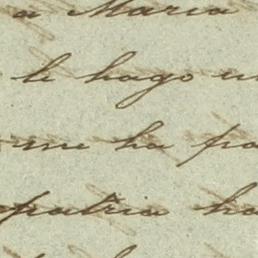 a Maria
le hago un
me ha pa
patria ha